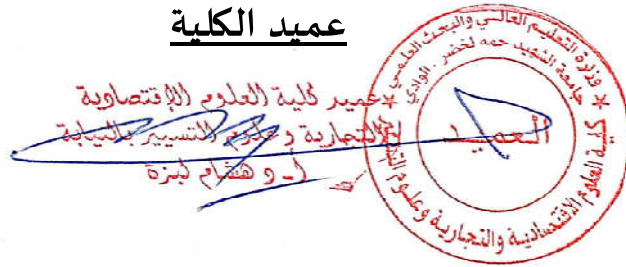 عميد الكلية
عميد كلية العلوم الإقتصادية
التجارية وعلوم التسيير بالنيابة
أ-د هشام لبزة
وزارة التعليم العالي والبحث العلمي
جامعة الشهيد حمه لخضر . الوادي
العميد
كلية العلوم الاقتصادية والتجارية وعلوم